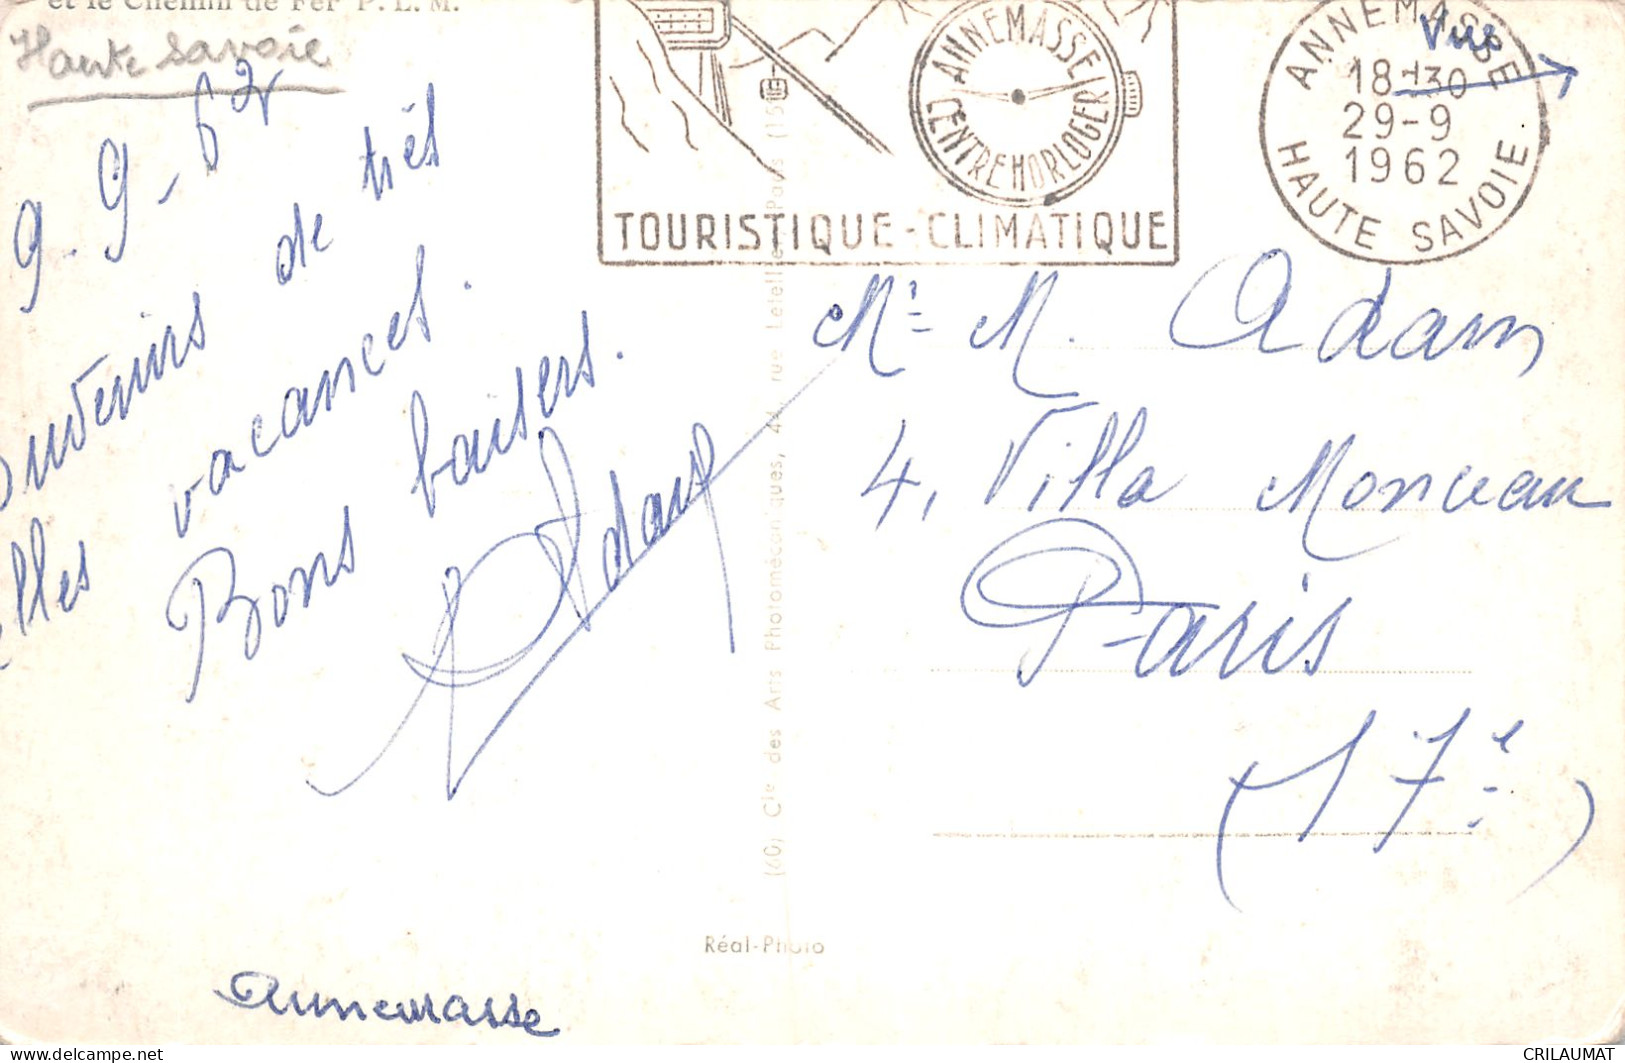 et le Chemin de Fer P. L. M.
Haute Savoie
9-9-62
Souvenirs de très
belles vacances.
Bons baisers.
Adam
Annemasse
ANNEMASSE
CENTRE HORLOGER
TOURISTIQUE - CLIMATIQUE
ANNEMASSE
18-30
29-9
1962
HAUTE SAVOIE
Vue
Mr M. Adam
4, Villa Monceau
Paris
(17e)
(60) Cie des Arts Photomécaniques, 44, rue Letellier, Paris (15
Réal-Photo
CRILAUMAT